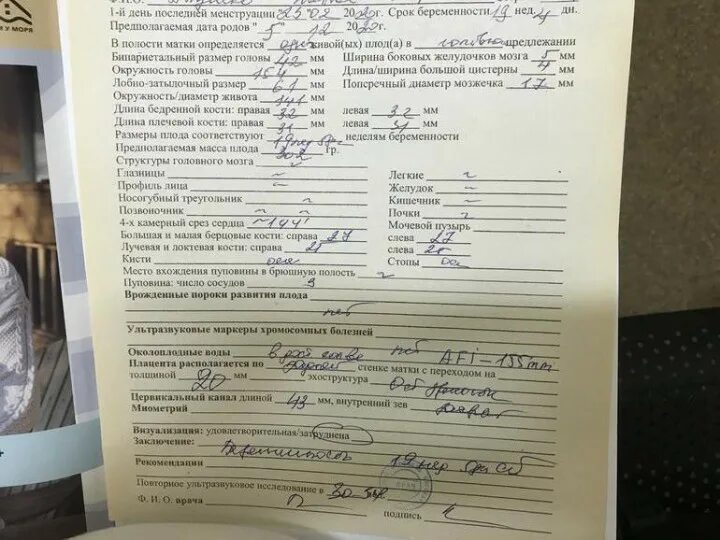 У МОРЯ
Ф.И.О.
1-й день последней менструации 23 02 2020г. Срок беременности 19 нед. 4 дн.
Предполагаемая дата родов " 5 " 12 2020г.
В полости матки определяется один живой(ых) плод(а) в предлежании
Бипариетальный размер головы 42 мм Ширина боковых желудочков мозга 5 мм
Окружность головы 154 мм Длина/ширина большой цистерны 4 мм
Лобно-затылочный размер 61 мм Поперечный диаметр мозжечка 17 мм
Окружность/диаметр живота 141 мм
Длина бедренной кости: правая 32 мм левая 32 мм
Длина плечевой кости: правая 31 мм левая 31 мм
Размеры плода соответствуют 19 нед неделям беременности
Предполагаемая масса плода 302 гр.
Структуры головного мозга
Глазницы Легкие
Профиль лица Желудок
Носогубный треугольник Кишечник
Позвоночник Почки
4-х камерный срез сердца 144 Мочевой пузырь
Большая и малая берцовые кости: справа 27 слева 27
Лучевая и локтевая кости: справа слева
Кисти Стопы
Место вхождения пуповины в брюшную полость
Пуповина: число сосудов 3
Врожденные пороки развития плода
нет
Ультразвуковые маркеры хромосомных болезней
нет
Околоплодные воды AFI - 155 mm
Плацента располагается по стенке матки с переходом на
толщиной 20 мм эхоструктура
Цервикальный канал длиной 43 мм, внутренний зев
Миометрий
Визуализация: удовлетворительная/затруднена
Заключение: Беременность 19 нед
Рекомендации
Повторное ультразвуковое исследование в 30 нед
Ф. И. О. врача
подпись